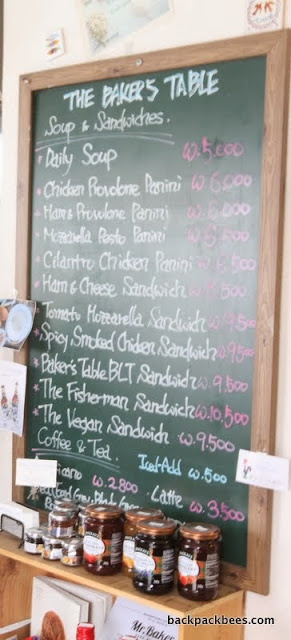 THE BAKER'S TABLE
Soup & Sandwiches.
* Daily Soup ₩.5.000
* Chicken Provolone Panini ₩.6.000
* Ham & Provolone Panini ₩.6.000
* Mozzarella Pesto Panini ₩.6.500
* Cilantro Chicken Panini ₩.6.500
* Ham & Cheese Sandwich
* Tomato Mozzarella Sandwich ₩.9.500
* Spicy Smoked Chicken Sandwich ₩.9500
* Baker's Table BLT Sandwich ₩.9.500
* The Fisherman Sandwich ₩.10.500
* The Vegan Sandwich ₩.9.500
Coffee & Tea. Iced-Add ₩.500
₩.2.800 · Latte ₩.3.500
Mr. Baker
backpackbees.com